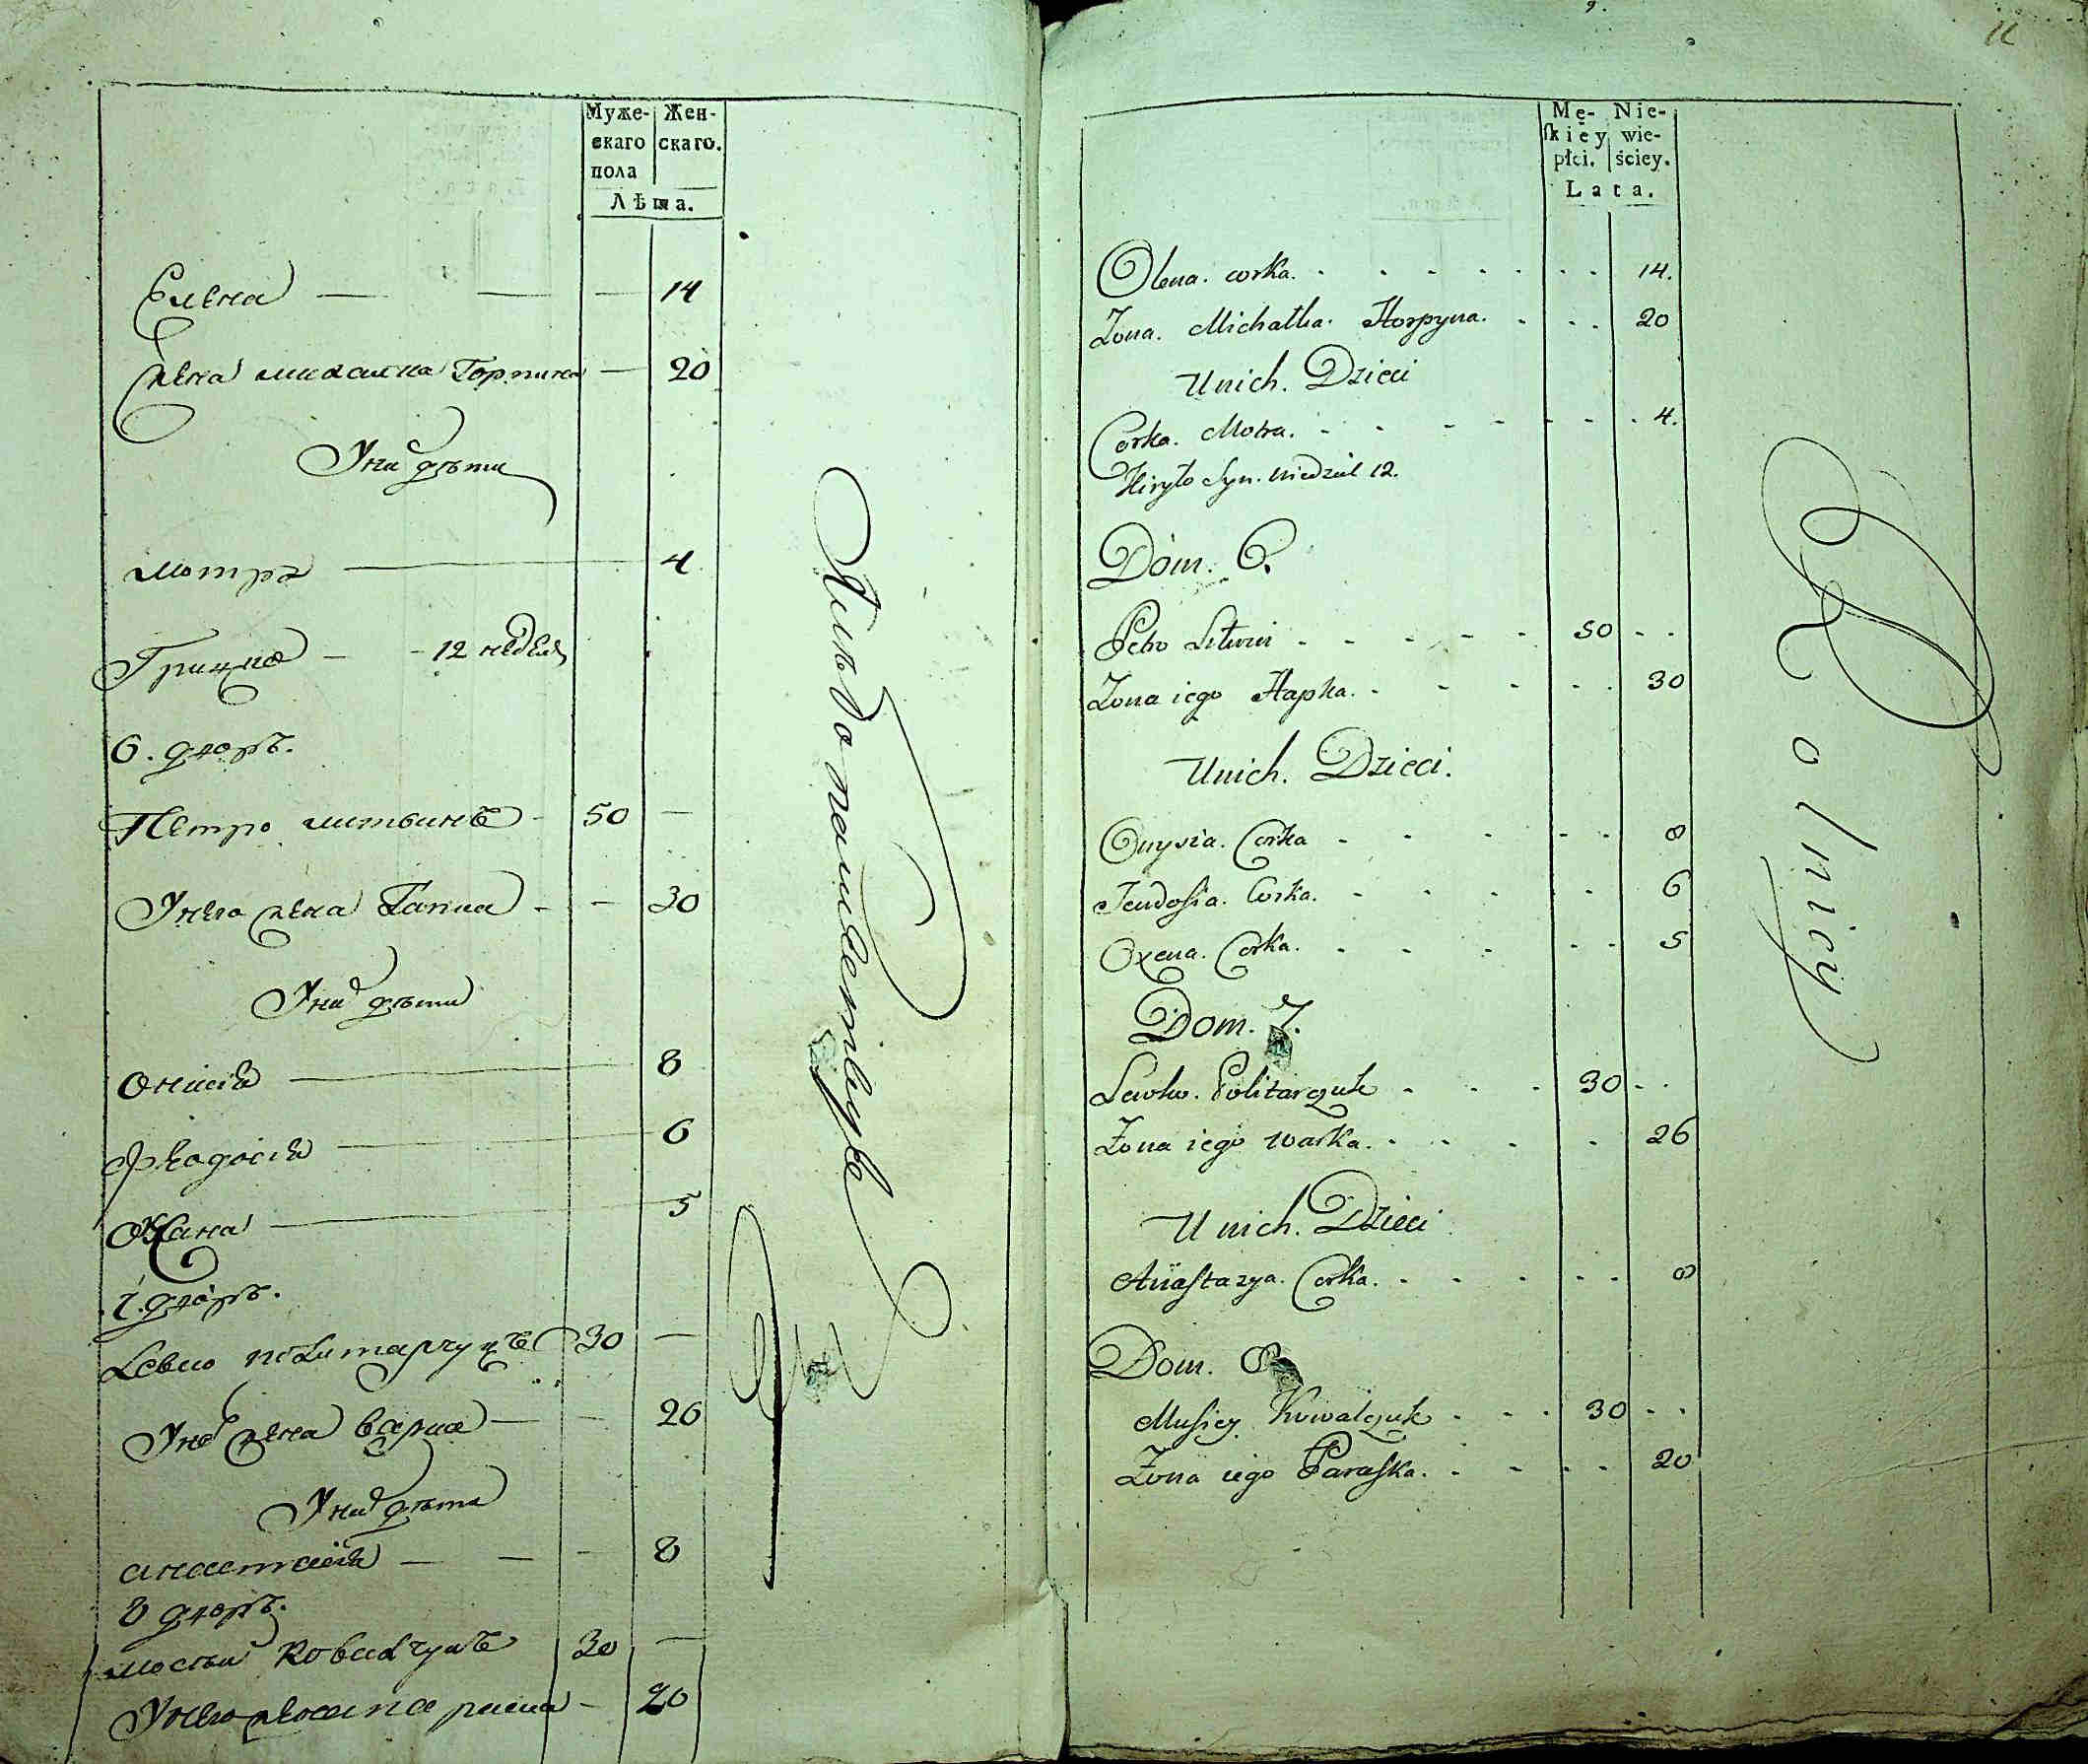 Муже-
скаго
пола
Жен-
скаго.
Лѣта.
Елена — — — 14
жена михалка Горпина — 20
У ни дѣти
мотра — 4
Грицко — - 12 недель
6. дворъ.
Петро литвинъ - 50 —
У него жена Гапка - — 30
У ни дѣти
Онисия — 8
Феодосия — 6
Оксана — 5
7. дворъ.
Левко политарчукъ 30 —
У нег жена варка — — 26
У ни дѣти
анастасия — — - 8
8 дворъ.
мосѣй ковалчукъ 30 —
У него жена параска — 20
Хлебопашествуе
11
Mę-
skiey
płci.
Nie-
wie-
ściey.
Lata.
Olena. corka. 14.
Zona. Michałka. Horpyna. 20
Unich. Dzieci
Corka. Motra. 4.
Hryćko Syn. niedziel 12.
Dom. 6.
Petro Litwin 50
Zona iego Hapka. 30
Unich. Dzieci.
Onysia. Corka 8
Feudosia. Corka. 6
Oxena. Corka. 5
Dom. 7.
Lewko. Politarczuk 30
Zona iego warka. 26
Unich. Dzieci
Anastazya. Corka. 8
Dom. 8.
Musiey Kowalczuk 30
Zona iego Paraska. 20
Rolnicy